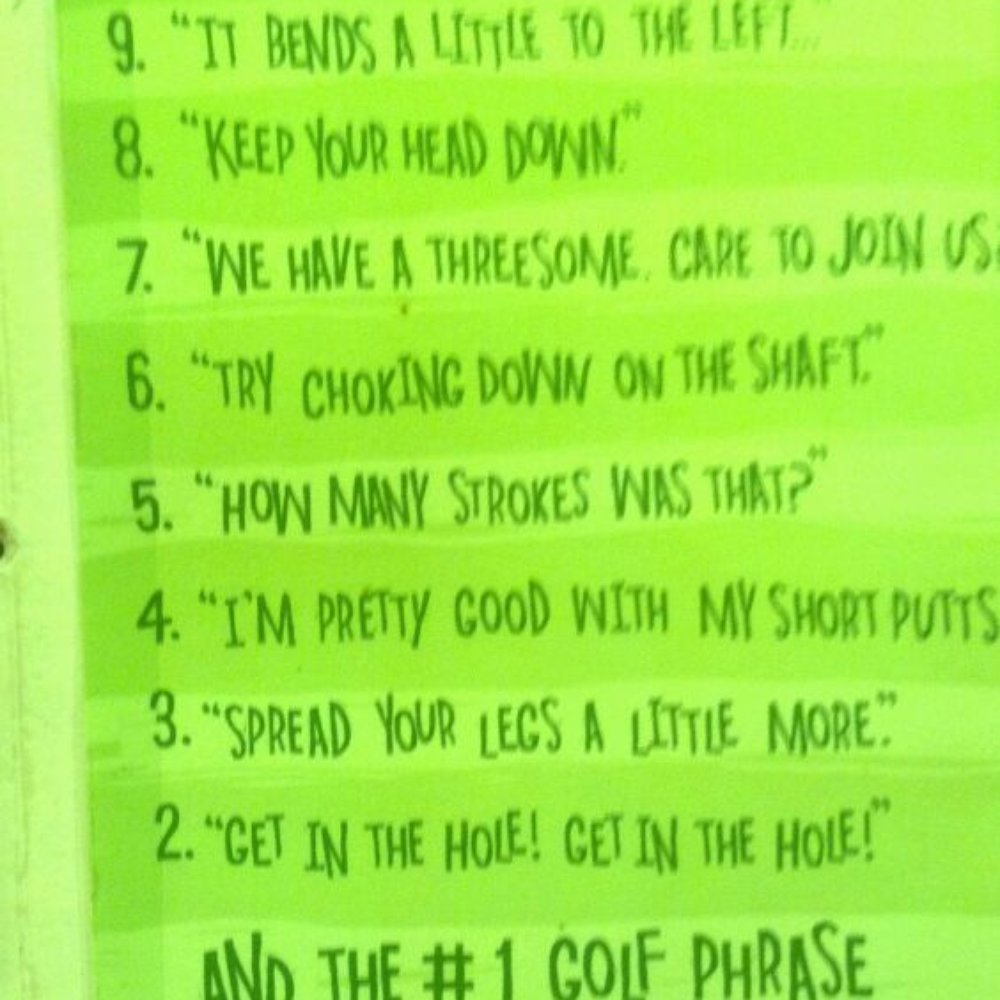 9. "IT BENDS A LITTLE TO THE LEFT..."
8. "KEEP YOUR HEAD DOWN."
7. "WE HAVE A THREESOME. CARE TO JOIN US
6. "TRY CHOKING DOWN ON THE SHAFT."
5. "HOW MANY STROKES WAS THAT?"
4. "I'M PRETTY GOOD WITH MY SHORT PUTTS
3. "SPREAD YOUR LEGS A LITTLE MORE."
2. "GET IN THE HOLE! GET IN THE HOLE!"
AND THE #1 GOLF PHRASE